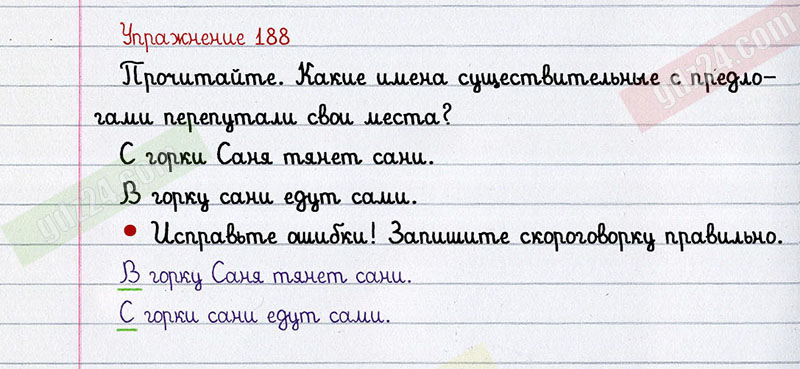 Упражнение 188
Прочитайте. Какие имена существительные с предло-
гами перепутали свои места?
С горки Саня тянет сани.
В горку сани едут сами.
• Исправьте ошибки! Запишите скороговорку правильно.
В горку Саня тянет сани.
С горки сани едут сами.
gdz24.com
gdz24.com